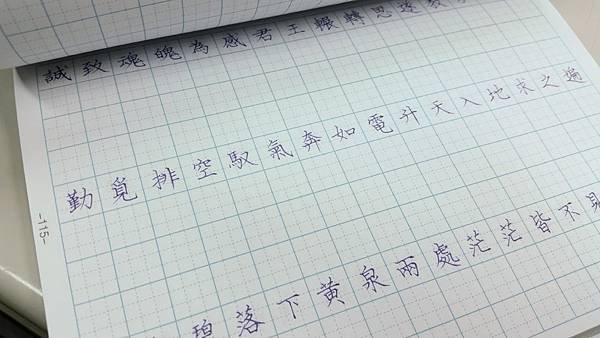 誠致魂魄為感君王輾轉思遂教
勤覓排空馭氣奔如電升天入地求之遍
碧落下黃泉兩處茫茫皆不見
-115-